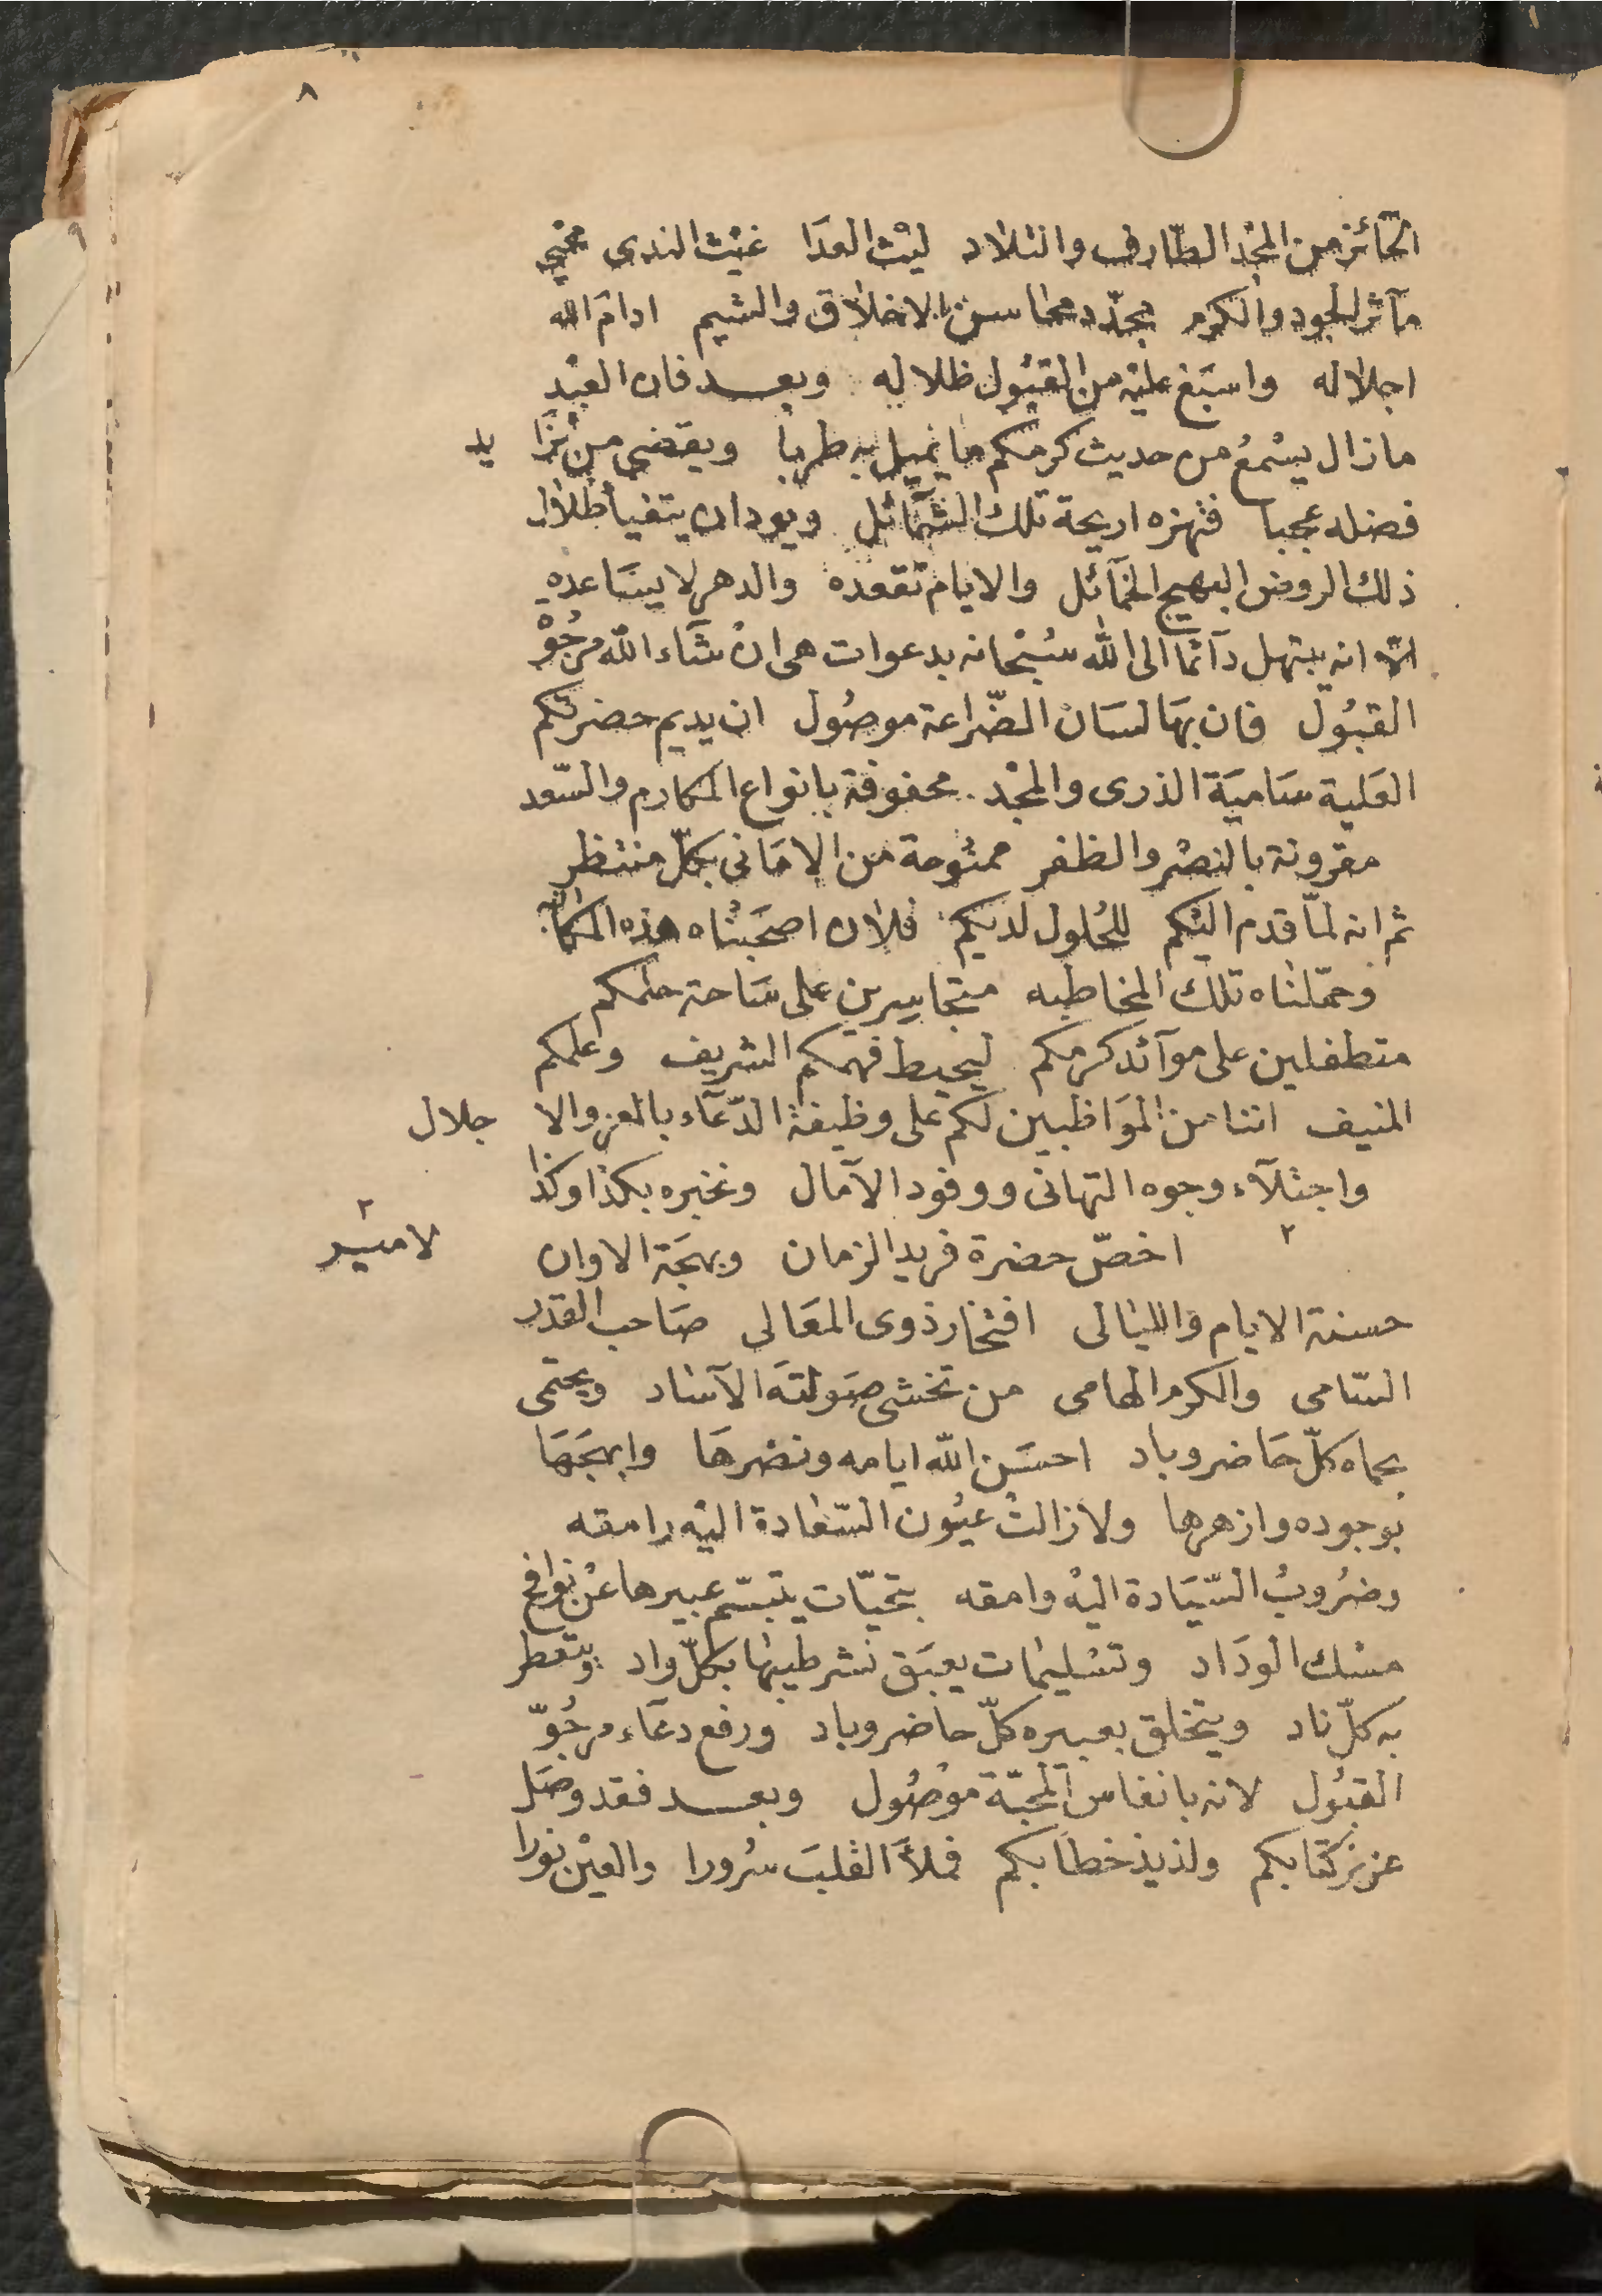 ٨
الحائز من المجْد الطّارف والتلاد ليْث العدَا غيْث الندى محْيي
مآثر الجود والكرم مجدّد محاسن الاخلاق والشيم ادامَ الله
اجلاله واسبَغ عليْه من القبُول ظلاله وبعد فان العبْد
مازال يسْمعُ من حديث كرمكم ما يميل به طربا ويقضى من تزَايد
فضله عجبا فتهزه اريحة تلك الشمَآئل ويود ان يتفيأ ظلال
ذلك الروض البهيج الخمآئل والايام تقعده والدهر لا يسَاعده
الاّ انه يبتهل دآئما الى الله سُبْحانه بدعوات هى انْ شآء اللّه مرجُوْة
القبُول فان بهَا لسَان الضّراعة موصُول ان يديم حضرتكم
العَلية سَاميَة الذرى والمجْد محفوفة بانواع المكارم والسّعد
مقرونة بالنصْر والظفر ممنُوحة من الامَانى بكلّ منتظر
ثم انه لمّا قدم اليْكم للحُلول لديكم فلان اصحَبْناه هذه المكاتبة
وحمّلناه تلك المخاطبه متجاسرين على سَاحة حلمكم
متطفلين على موآئد كرمكم ليحيط فهمكم الشريف وعلمكم
المنيف اننا من الموَاظبين لكم على وظيفة الدّعآء بالعز والاجلال
واجتلآء وجوه التهانى ووفود الآمال ونخبره بكذا وكذا
٢ اخصّ حضرة فريد الزمان وبهجَة الاوان ٢ لامير
حسنة الايام والليالى افتخار ذوى المعَالى صَاحب القدْر
السّامى والكرم الهامى من تخشى صَولتَه الآسَاد ويحتمى
بحماه كلّ حَاضر وباد احسَن اللّه ايامه ونضرهَا وابهجَهَا
بوجوده وازهرها ولا زالتْ عيُون السّعَادة اليْه رامقه
وضرُوبُ السّيَادة اليْه وامقه بتحيّات يتبسّم عبيرها عنْ نوافح
مسْك الودَاد وتسْليمات يعبَق نشر طيبها بكلّ واد ويتعطر
به كلّ ناد ويتخلق بعبيره كلّ حاضر وباد ورفع دعَاء مرجُوّ
القبُول لانه بانفاس المحبّة موْصُول وبعد فقد وصَل
عزيز كتابكم ولذيذ خطابكم فملأَ القلبَ سُرورا والعيْن نورا